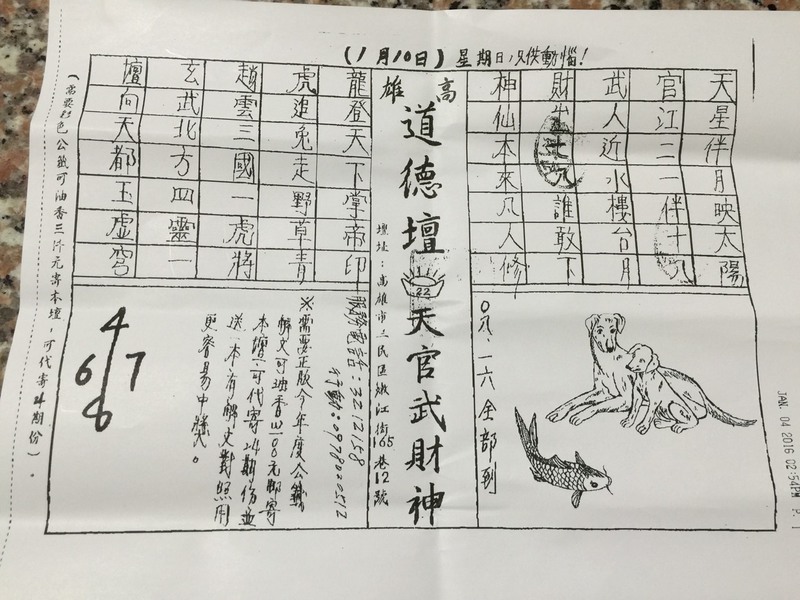 (1月10日)星期日,只供動惱!
天星伴月映太陽
官江二一伴十九
武人近水樓台月
財 誰敢下
神仙本來凡人修
高雄
道德壇
22
天官武財神
壇址:高雄市三民區嫩江街165巷12號
龍登天下掌帝印
虎追兔走野草青
趙雲三國一虎將
玄武北方四靈一
壇向天都玉虛宮
0八.一六全部到
服務電話:3212158
行動:0978020512
※需要正版今年度公籤
解文可油香 00元郵寄
本壇,可代寄24期份並
送一本有解文對照用
更容易中獎。
4
6 7
8
(需要彩色公籤可油香三仟元寄本壇,可代寄24期份)。
JAN. 04 2016 02:54PM P. 1